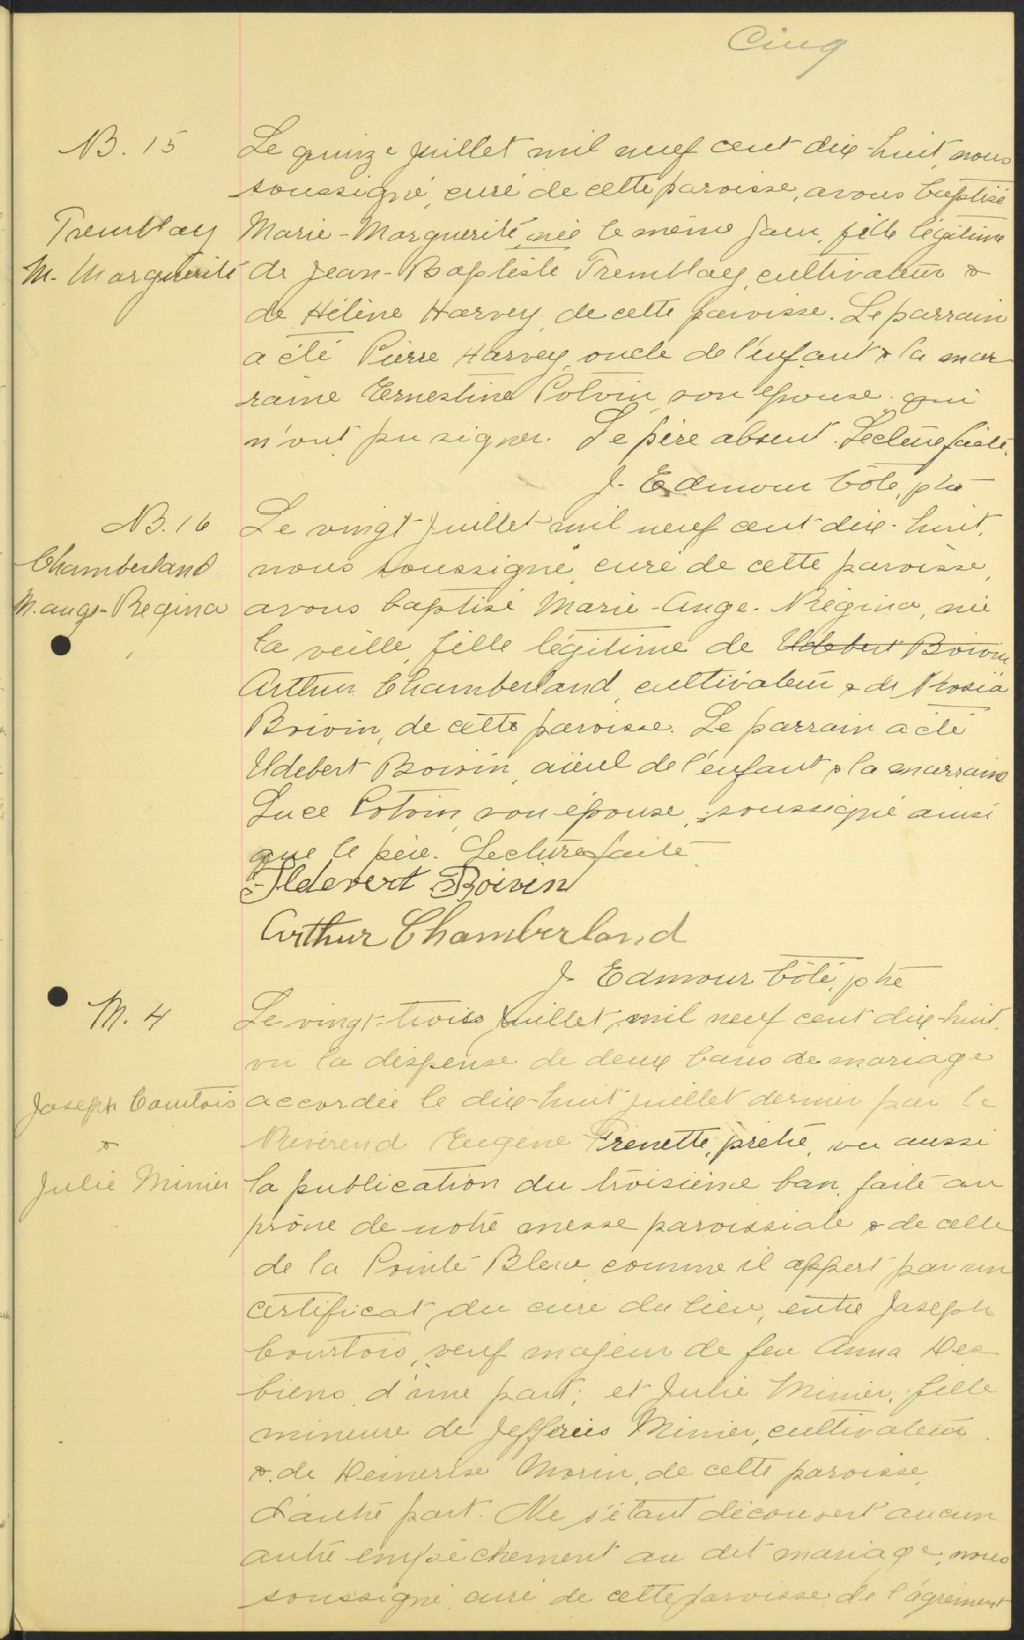 Cinq
B. 15
Tremblay
M. Marguerite
Le quinze juillet mil neuf cent dix-huit, nous
soussigné, curé de cette paroisse, avons baptisé
Marie-Marguerite, née le même jour, fille légitime
de Jean-Baptiste Tremblay, cultivateur &
de Hélène Harvey, de cette paroisse. Le parrain
a été Pierre Harvey, oncle de l'enfant & la mar
raine Ernestine Potvin, son épouse, qui
n'ont pu signer. Le père absent. Lecture faite.
J. Edmour Côté, ptre
B. 16
Chamberland
M. ange-Régina
Le vingt juillet mil neuf cent dix-huit,
nous soussigné, curé de cette paroisse,
avons baptisé Marie-Ange-Régina, née
la veille, fille légitime de Ildebert Boivin
Arthur Chamberland, cultivateur & de Rosia
Boivin, de cette paroisse. Le parrain a été
Ildebert Boivin, aïeul de l'enfant & la marraine
Luce Potvin, son épouse, soussigné ainsi
que le père. Lecture faite
Ildevert Boivin
Arthur Chamberland
J. Edmour Côté, ptre
M. 4
Joseph Courtois
&
Julie Minier
Le vingt-trois juillet, mil neuf cent dix-huit,
vu la dispense de deux bans de mariage
accordée le dix-huit juillet dernier par le
Révérend Eugène Frenette, prêtre, vu aussi
la publication du troisième ban, faite au
prône de notre messe paroissiale & de celle
de la Pointe Bleue, comme il appert par un
certificat du curé du lieu, entre Joseph
Courtois, veuf majeur de feu Anna Des
biens, d'une part; et Julie Minier, fille
mineure de Jefferies Minier, cultivateur
& de Démerise Morin, de cette paroisse,
d'autre part. Ne s'étant découvert aucun
autre empêchement au dit mariage, nous
soussigné, curé de cette paroisse, de l'agrément